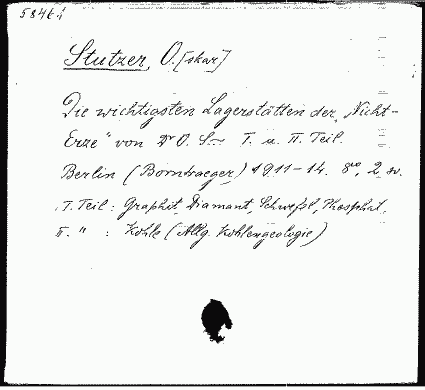 5846 1
Stutzer, O.[skar]
Die wichtigsten Lagerstätten der „Nicht-
Erze" von Dr O. S~ I. u. II. Teil.
Berlin (Borntraeger) 1911-14. 8vo, 2 sv.
I. Teil: Graphit, Diamant, Schwefel, Phosphat.
II. " : Kohle (Allg. Kohlengeologie)